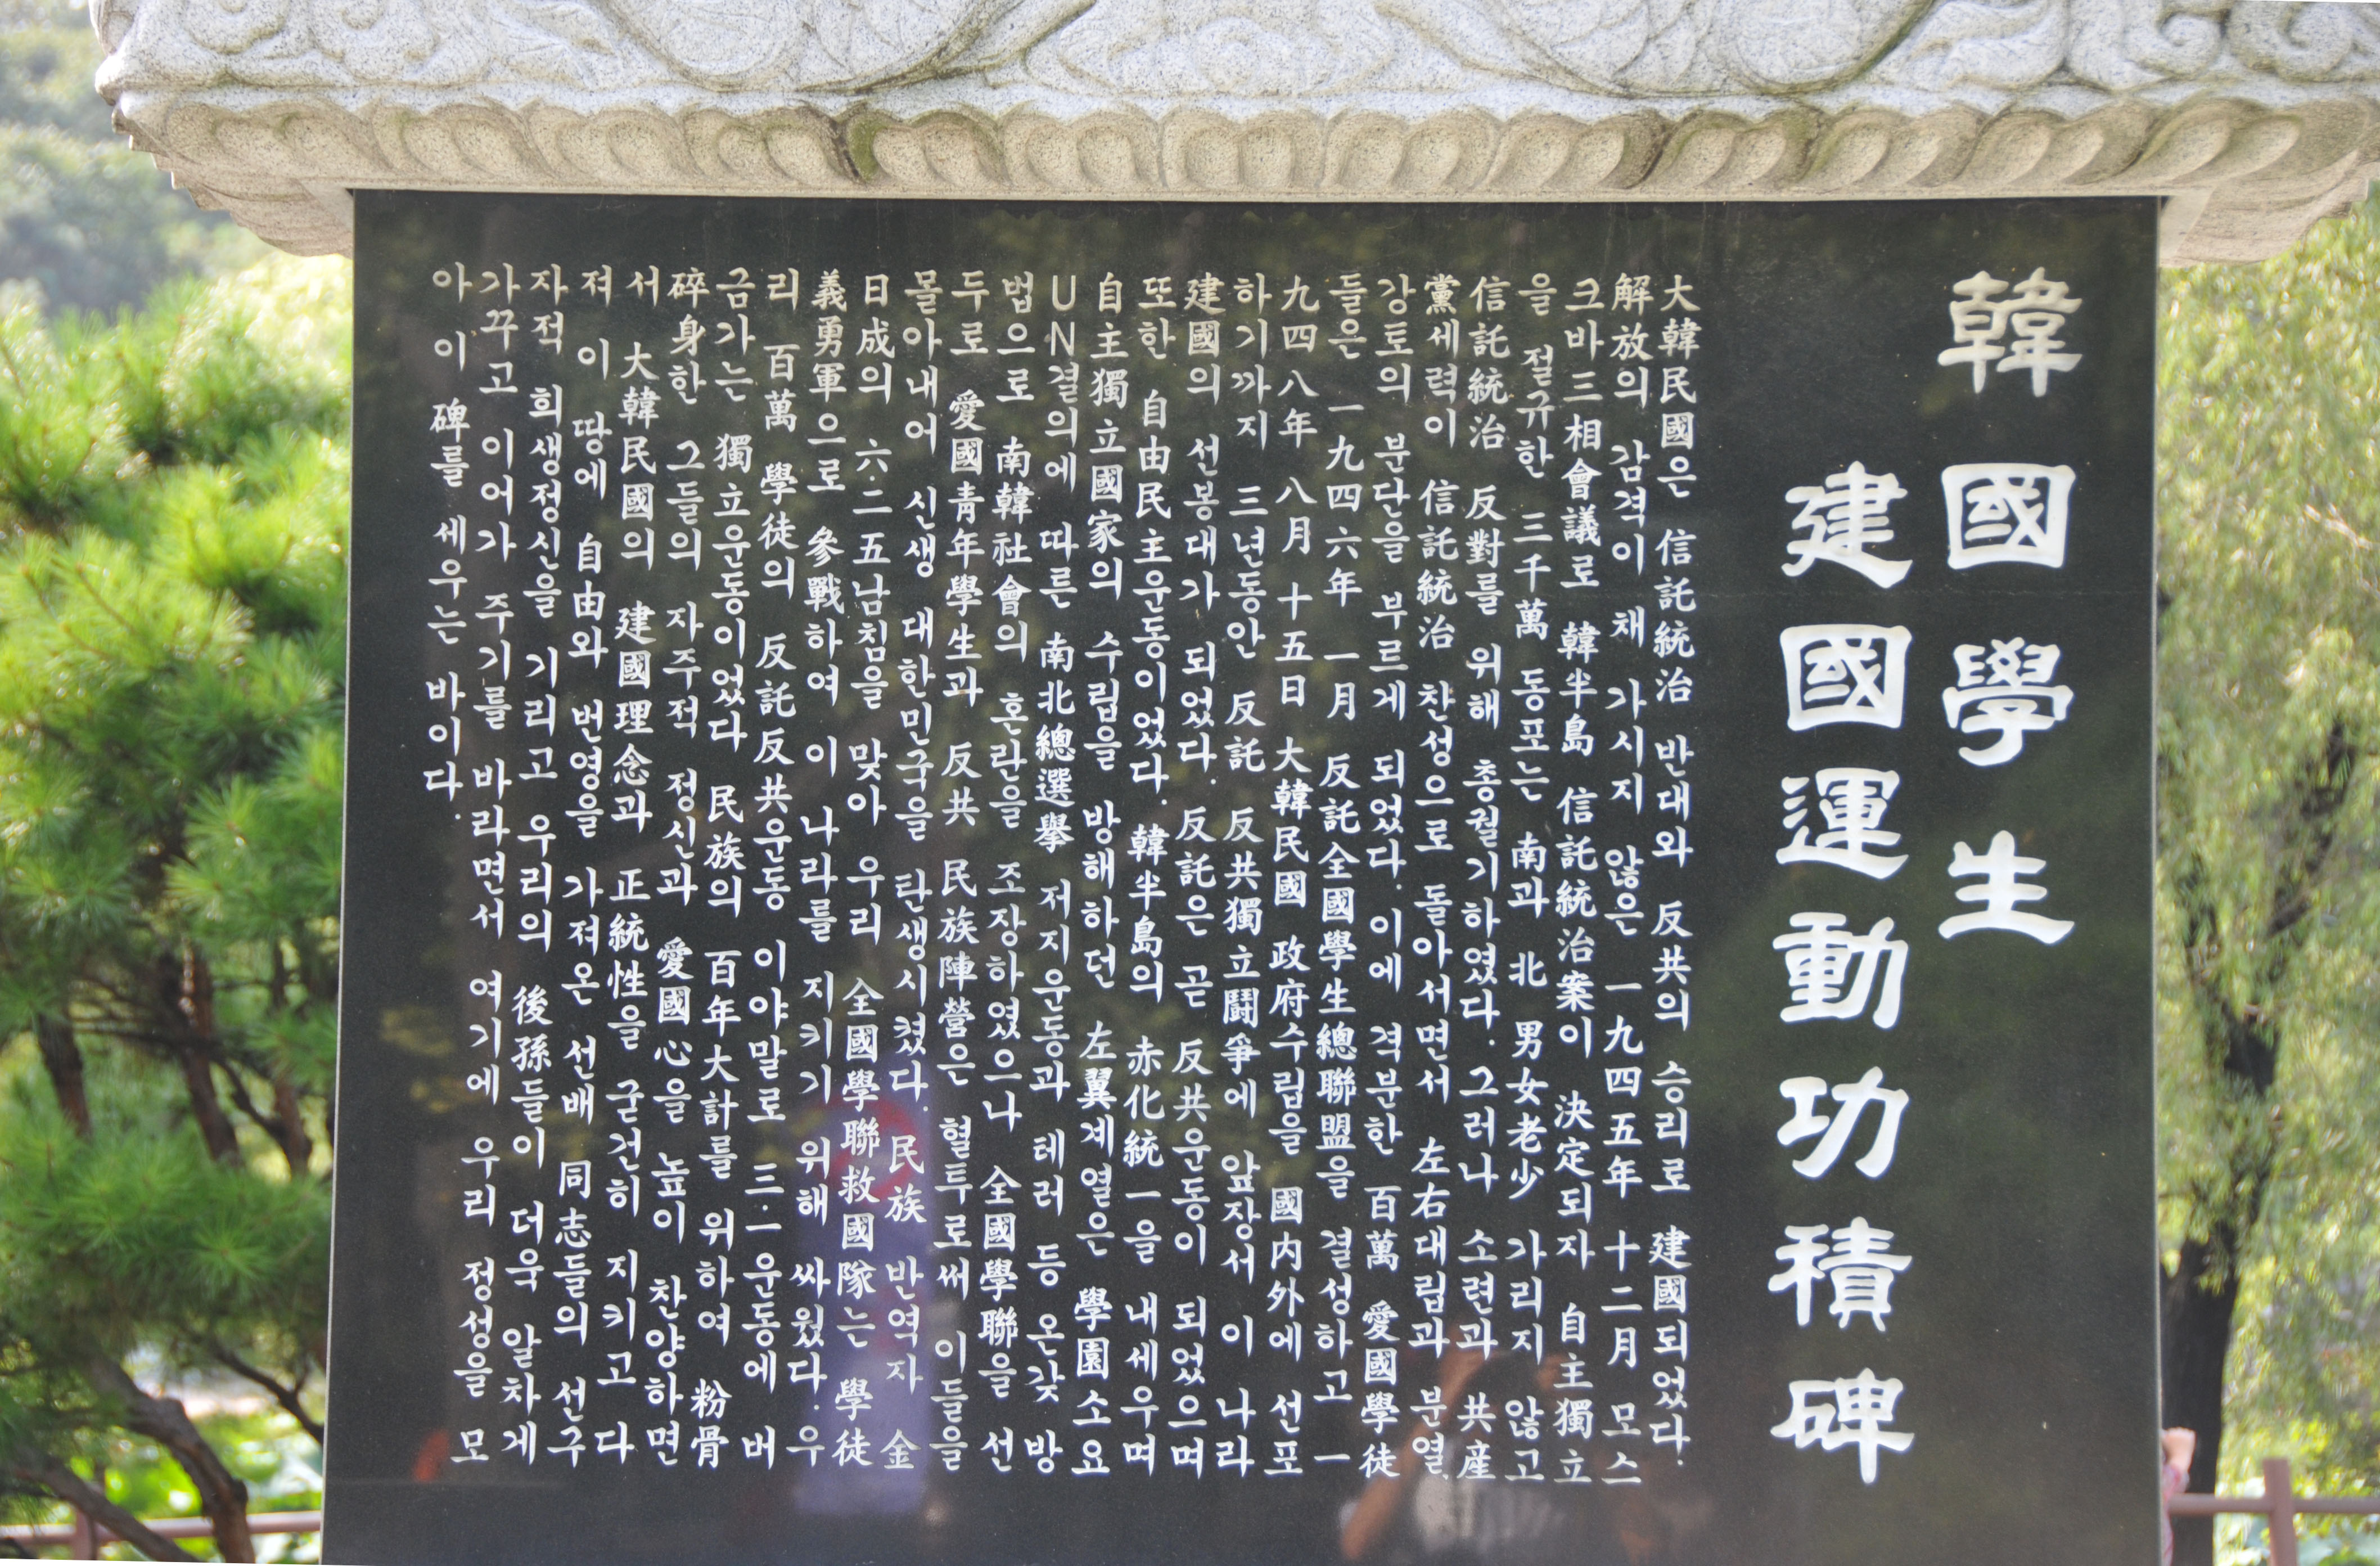 韓國學生
建國運動功積碑
大韓民國은 信託統治 반대와 反共의 승리로 建國되었다.
解放의 감격이 채 가시지 않은 一九四五年 十二月 모스
크바三相會議로 韓半島 信託統治案이 決定되자 自主獨立
을 절규한 三千萬 동포는 南과 北 男女老少 가리지 않고
信託統治 反對를 위해 총궐기하였다. 그러나 소련과 共産
黨세력이 信託統治 찬성으로 돌아서면서 左右대립과 분열
강토의 분단을 부르게 되었다. 이에 격분한 百萬 愛國學徒
들은 一九四六年 一月 反託全國學生總聯盟을 결성하고 一
九四八年 八月 十五日 大韓民國 政府수립을 國内外에 선포
하기까지 三년동안 反託 反共獨立鬪爭에 앞장서 이 나라
建國의 선봉대가 되었다. 反託은 곧 反共운동이 되었으며
또한 自由民主운동이었다. 韓半島의 赤化統一을 내세우며
自主獨立國家의 수립을 방해하던 左翼계열은 學園소요
UN결의에 따른 南北總選擧 저지운동과 테러 등 온갖 방
법으로 南韓社會의 혼란을 조장하였으나 全國學聯을 선
두로 愛國靑年學生과 反共 民族陣營은 혈투로써 이들을
몰아내어 신생 대한민국을 탄생시켰다. 民族 반역자 金
日成의 六.二五남침을 맞아 우리 全國學聯救國隊는 學徒
義勇軍으로 參戰하여 이 나라를 지키기 위해 싸웠다. 우
리 百萬 學徒의 反託反共운동 이야말로 三.一운동에 버
금가는 獨立운동이었다 民族의 百年大計를 위하여 粉骨
碎身한 그들의 자주적 정신과 愛國心을 높이 찬양하면
서 大韓民國의 建國理念과 正統性을 굳건히 지키고 다
져 이 땅에 自由와 번영을 가져온 선배 同志들의 선구
자적 희생정신을 기리고 우리의 後孫들이 더욱 알차게
가꾸고 이어가 주기를 바라면서 여기에 우리 정성을 모
아 이 碑를 세우는 바이다.